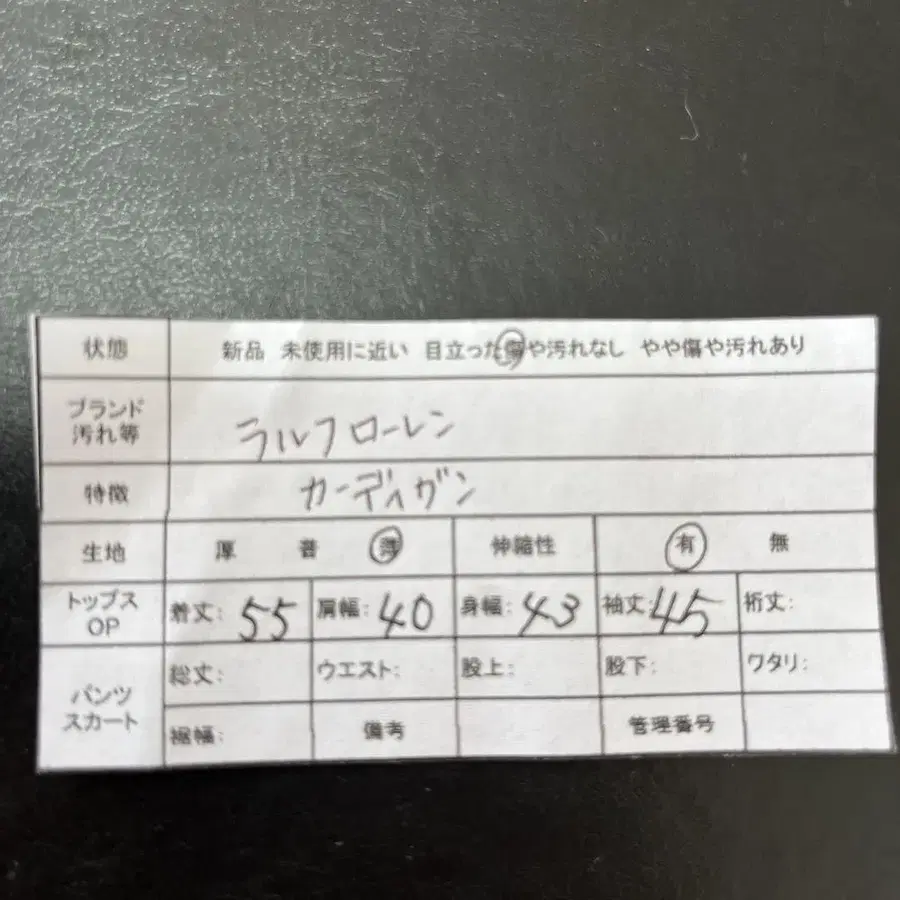 状態 新品 未使用に近い 目立った傷や汚れなし やや傷や汚れあり
ブランド
汚れ等 ラルフローレン
特徴 カーディガン
生地 厚 普 薄 伸縮性 有 無
トップス
OP 着丈: 55 肩幅: 40 身幅: 43 袖丈: 45 裄丈:
パンツ
スカート 総丈: ウエスト: 股上: 股下: ワタリ:
裾幅: 備考 管理番号